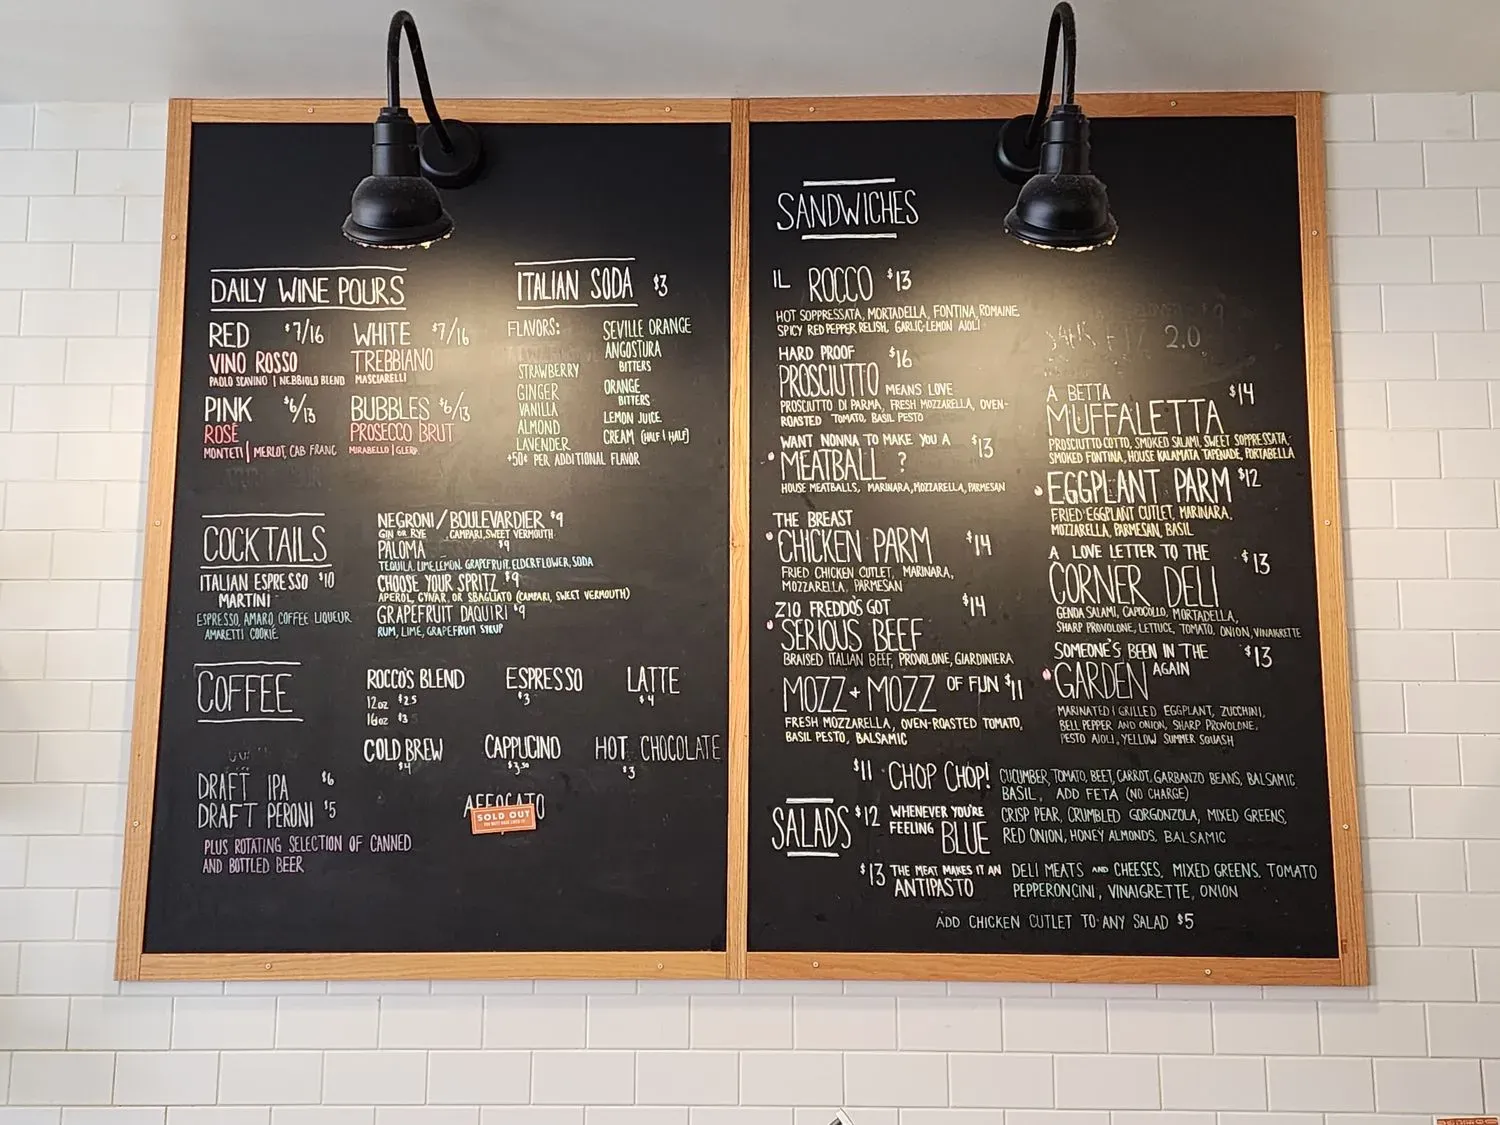 DAILY WINE POURS
RED $7/16
VINO ROSSO
PAOLO SCAVINO | NEBBIOLO BLEND
WHITE $7/16
TREBBIANO
MASCIARELLI
PINK $6/13
ROSÉ
MONTETI | MERLOT, CAB FRANC
BUBBLES $6/13
PROSECCO BRUT
MIRABELLO | GLERA
ITALIAN SODA $3
FLAVORS:
STRAWBERRY
GINGER
VANILLA
ALMOND
LAVENDER
SEVILLE ORANGE
ANGOSTURA
BITTERS
ORANGE
BITTERS
LEMON JUICE
CREAM (HALF | HALF)
+50¢ PER ADDITIONAL FLAVOR
COCKTAILS
ITALIAN ESPRESSO $10
MARTINI
ESPRESSO, AMARO, COFFEE LIQUEUR
AMARETTI COOKIE
NEGRONI/BOULEVARDIER $9
GIN OR RYE CAMPARI, SWEET VERMOUTH
PALOMA $9
TEQUILA, LIME, LEMON, GRAPEFRUIT, ELDERFLOWER, SODA
CHOOSE YOUR SPRITZ $9
APEROL, CYNAR, OR SBAGLIATO (CAMPARI, SWEET VERMOUTH)
GRAPEFRUIT DAQUIRI $9
RUM, LIME, GRAPEFRUIT SYRUP
COFFEE
ROCCO'S BLEND
12oz $2.5
16oz $3
ESPRESSO
$3
LATTE
$4
COLD BREW
$4
CAPPUCINO
$3.50
HOT CHOCOLATE
$3
AFFOGATO
SOLD OUT
DRAFT IPA $6
DRAFT PERONI $5
PLUS ROTATING SELECTION OF CANNED
AND BOTTLED BEER
SANDWICHES
IL ROCCO $13
HOT SOPPRESSATA, MORTADELLA, FONTINA, ROMAINE,
SPICY RED PEPPER RELISH, GARLIC-LEMON AIOLI
HARD PROOF $16
PROSCIUTTO MEANS LOVE
PROSCIUTTO DI PARMA, FRESH MOZZARELLA, OVEN-
ROASTED TOMATO, BASIL PESTO
WANT NONNA TO MAKE YOU A $13
MEATBALL ?
HOUSE MEATBALLS, MARINARA, MOZZARELLA, PARMESAN
THE BREAST
CHICKEN PARM $14
FRIED CHICKEN CUTLET, MARINARA,
MOZZARELLA, PARMESAN
ZIO FREDDO'S GOT $14
SERIOUS BEEF
BRAISED ITALIAN BEEF, PROVOLONE, GIARDINIERA
MOZZ + MOZZ OF FUN $11
FRESH MOZZARELLA, OVEN-ROASTED TOMATO,
BASIL PESTO, BALSAMIC
2.0
A BETTA $14
MUFFALETTA
PROSCIUTTO COTTO, SMOKED SALAMI, SWEET SOPPRESSATA,
SMOKED FONTINA, HOUSE KALAMATA TAPENADE, PORTABELLA
EGGPLANT PARM $12
FRIED EGGPLANT CUTLET, MARINARA,
MOZZARELLA, PARMESAN, BASIL
A LOVE LETTER TO THE $13
CORNER DELI
GENOA SALAMI, CAPOCOLLO, MORTADELLA,
SHARP PROVOLONE, LETTUCE, TOMATO, ONION, VINAIGRETTE
SOMEONE'S BEEN IN THE $13
GARDEN AGAIN
MARINATED | GRILLED EGGPLANT, ZUCCHINI,
BELL PEPPER AND ONION, SHARP PROVOLONE,
PESTO AIOLI, YELLOW SUMMER SQUASH
SALADS
$11 CHOP CHOP! CUCUMBER, TOMATO, BEET, CARROT, GARBANZO BEANS, BALSAMIC
BASIL, ADD FETA (NO CHARGE)
$12 WHENEVER YOU'RE FEELING BLUE CRISP PEAR, CRUMBLED GORGONZOLA, MIXED GREENS,
RED ONION, HONEY ALMONDS, BALSAMIC
$13 THE MEAT MAKES IT AN ANTIPASTO DELI MEATS AND CHEESES, MIXED GREENS, TOMATO
PEPPERONCINI, VINAIGRETTE, ONION
ADD CHICKEN CUTLET TO ANY SALAD $5